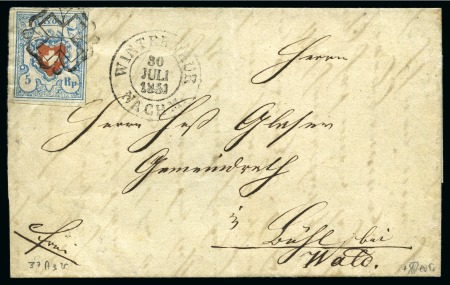 5 Rp
WINTERTHUR
30
JULI
1851
NACHM
Herrn
Herrn Heß Glaser
Gemeindrath
in
Bühl bei
Wald.